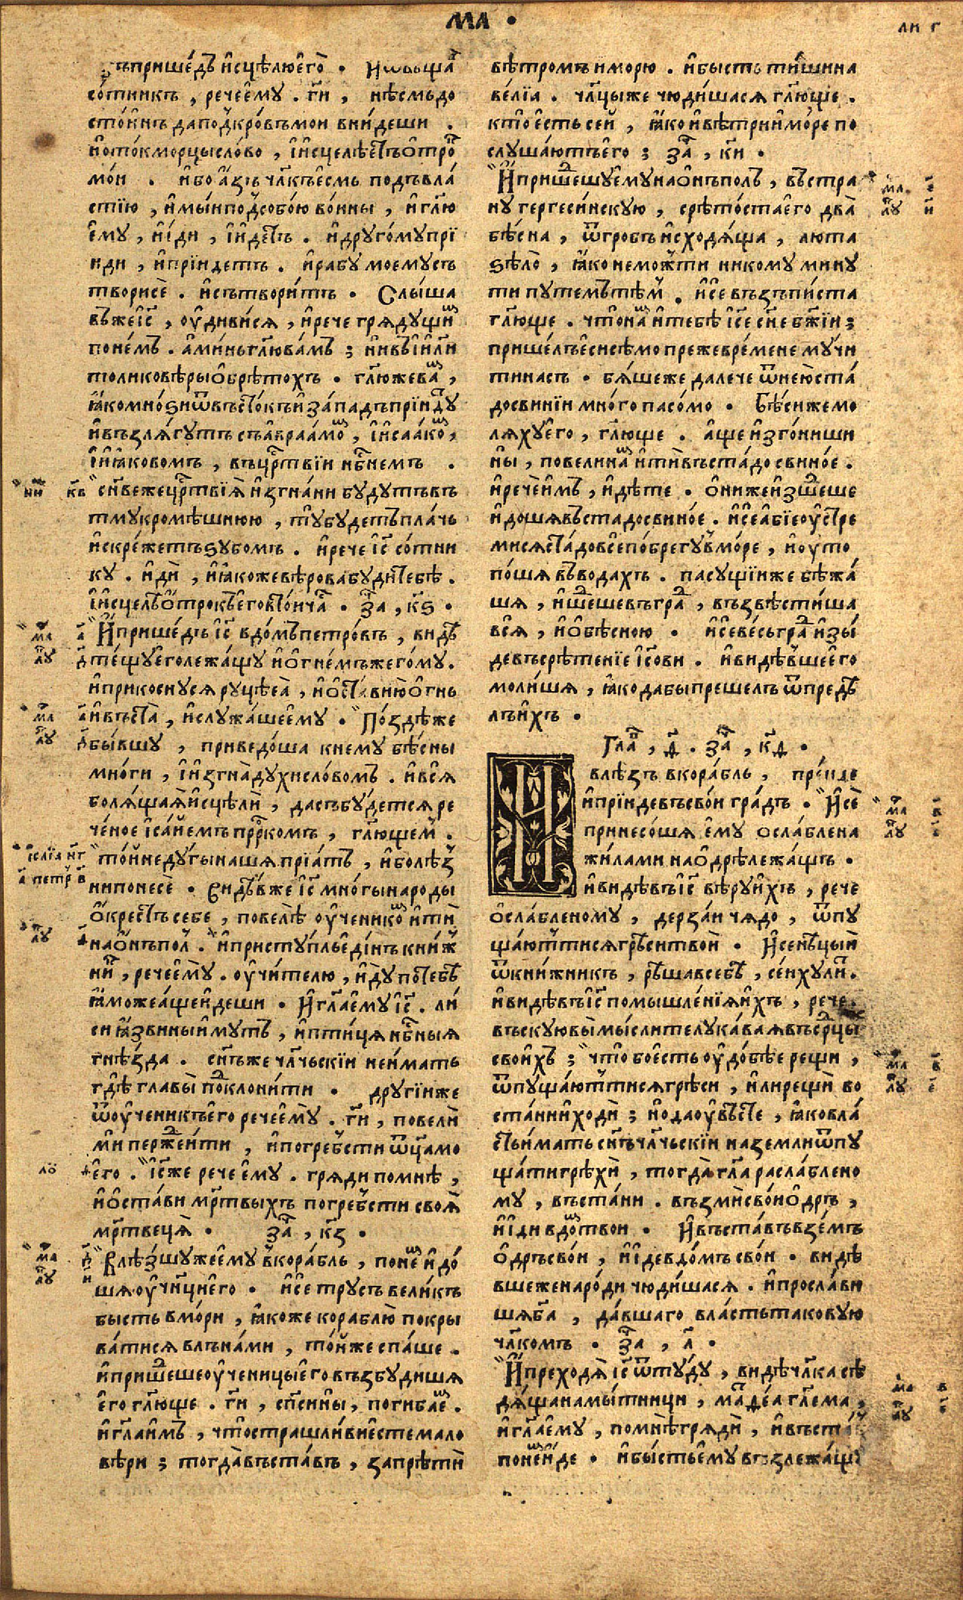 МА ·
ли г
ъпришедъ исцѣлюего · Иѿвѣща
со́тникъ , речеему . гн҃и , нѣсмьдо
стоинъ даподкровъмои внидеши .
нотокморцыслово , иисцелѣетъотро
мои . ибо азъ чл҃къесмь подъвла
стїю , имыиподсобою воины , иглю
ему , иди , иидетъ . идругомупрї
иди , ипрїидетъ . ирабу моемусъ
творисе . исътворитъ · Слыша
въжеіс҃ , удивися , ирече грядущи
понемъ . аминьглювамъ ; нивъіили
толиковѣрыобрѣтохъ · глюжева ,
якомноѕиѿвъстокъизападъпрїиду
ивъзлягутъ съавраамо , иисаако ,
иіаковомъ , въцр҃твїи нб҃немъ .
сн҃вежецр҃твїя изгнани будутъвъ
тмукромѣшнюю , тубудетъплачь
искрежетъзубомъ . ирече іс҃ сотни
ку . иди , иякожевѣровабудитебѣ .
иисцелѣотрокъеговтойча . за , кѕ ·
Ипришедъ іс҃ вдомъпетровъ , видѣ
тещуеголежащу иогнемъжегому .
иприкоснуся руцѣеа , иоставиюогнь
ивъста , ислужашеему . Поздѣже
бывшу , приведоша кнему бѣсны
многи , иизгнадухисловомъ . ився
болящаяисцели , дасъбудется ре
ченое ісаиемъ пр҃ркомъ , глющем .
тойнедугынашя прїатъ , иболѣз
нипонесе . видѣвже іс҃ многынароды
окрестъ себе , повелѣ ученико ити
наонъпол . иприступльединъ книж
ни , речеему . учителю , идупотебѣ
яможеащеидеши . Иглаему іс҃ . ли
си язвиныимутъ , иптиця нб҃ныя
гнѣзда . сн҃ъже чл҃чьскїи неимать
гдѣ главы поклонити . другїиже
ѿученикъего речеему . гн҃и , повели
ми первеити , ипогребсти ѿц҃амо
его . іс҃же рече ему . гряди помнѣ ,
иостави мр҃твыхъ погребсти своя
мр҃твеця . за , кз .
Влѣзшужеему вкорабль , поне идо
шяуч҃нциего . исе трусъ великъ
бысть вмори , якоже кораблю покры
ватися влънами , тойже спаше .
ипришешеученицыего възбудишя
его глюще . гн҃и , спс҃ины , погибае .
иглаимъ , чтострашливиестемало
вѣри ; тогдавъставъ , запрѣти
вѣтромъ иморю . ибысть тишина
велїа . чл҃цыже чюдишася глюще .
ктоесть сей , якоивѣтриимо́ре по
слушаютъего ; за , ки .
Ипришешуемунаонъполъ , въстра
ну гергесинскую , срѣтостаего два
бѣсна , ѿгробъ исходяща , люта
ѕѣло , яко неможти никому мину
ти путемътѣм . исе възъписта
глюще . чтона итебѣ ісе сн҃е бж҃їи ;
пришелъесисѣмо прежевремене мучи
тинасъ . бяшеже далече ѿнеюста
досвинїи много пасомо . Бѣсижемо
ляхуего , глюще . аще изгониши
ны , повелина итивъстадо свиное .
иречеимъ , идѣте . онижеизшеше
идошявъстадосвиное . исеабїеустре
мисястадовсепобрегувморе , иуто
пошя въводахъ . пасущїиже бѣжа
шя , ишешевъгра , възвѣстиша
вся , иобѣсною . исевесьгра изы
девъсрѣтенїе ісови . ивидѣвшеего
молишя , якодабыпрешелъ ѿпредѣ
лъихъ .
Гла , д . за , кд .
И
влѣзъ вкорабль , преиде
ипрїидевъсвои градъ . Исе
принесошя ему ослаблена
жилами наодрѣлежащъ .
ивидѣвъіс҃ вѣруихъ , рече
ослабленому , дерзаи чядо , ѿпу
щаютътисягрѣситвои . Исенѣцыи
ѿкнижникъ , рѣшавсебѣ , сеихули .
ивидѣвъіс҃ помышленїяихъ , рече .
въскуювымыслителукаваявъсрцы
своихъ ; чтобоесть удобѣе рещи ,
ѿпущаютътисягрѣси , илирещи во
станииходи ; нодаувѣсте , яковла
стьимать сн҃ъчл҃чьскїи наземлиѿпу
щатигрѣхи , тогдагла раслаблено
му , въстани . възмисвоиодръ ,
иидивдотвои . Ивъставъвземъ
одръсвои , иидевдомъсвои . видѣ
вшеженароди чюдишася . ипрослави
шяб҃а , давшаго властьтаковую
чл҃комъ . за , л .
Ипреходя іс҃ ѿтуду , видѣчл҃ка сѣ
дящанамытници , мадеа глема ,
иглаему , помнѣгряди , ивъста
понеиде . ибыстьему възлежащу